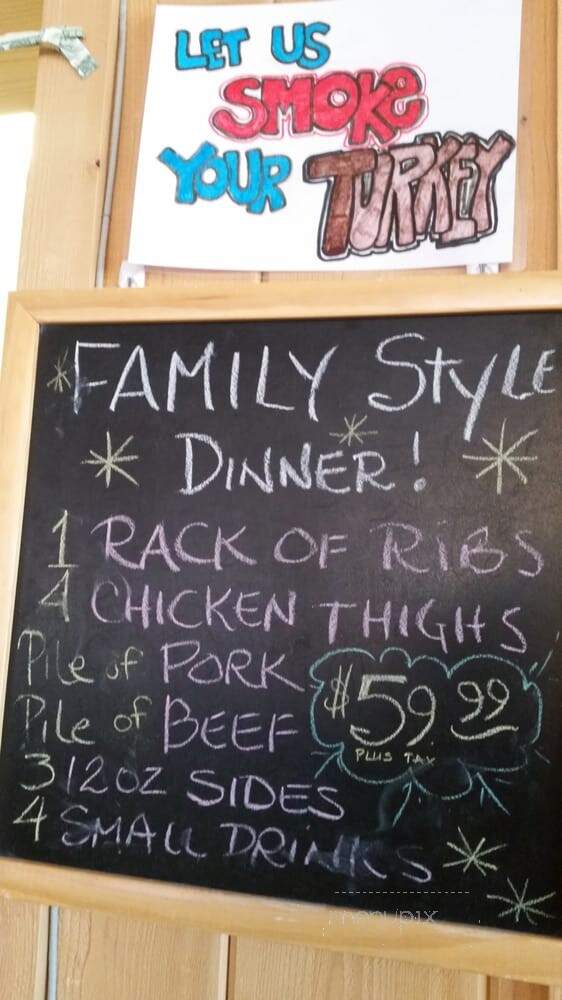 LET US
SMOKE
YOUR TURKEY
FAMILY STYLE
DINNER!
1 RACK OF RiBS
4 CHICKEN THIGHS
Pile of PORK
Pile of BEEF
$59.99
PLUS TAX
3 12 OZ SIDES
4 SMALL DRiNKS
menupix